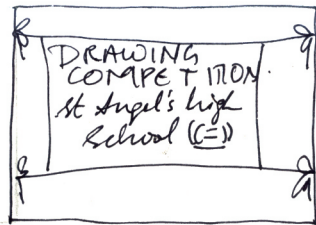 DRAWING
COMPETITION.
St Angel's high
School ((=))